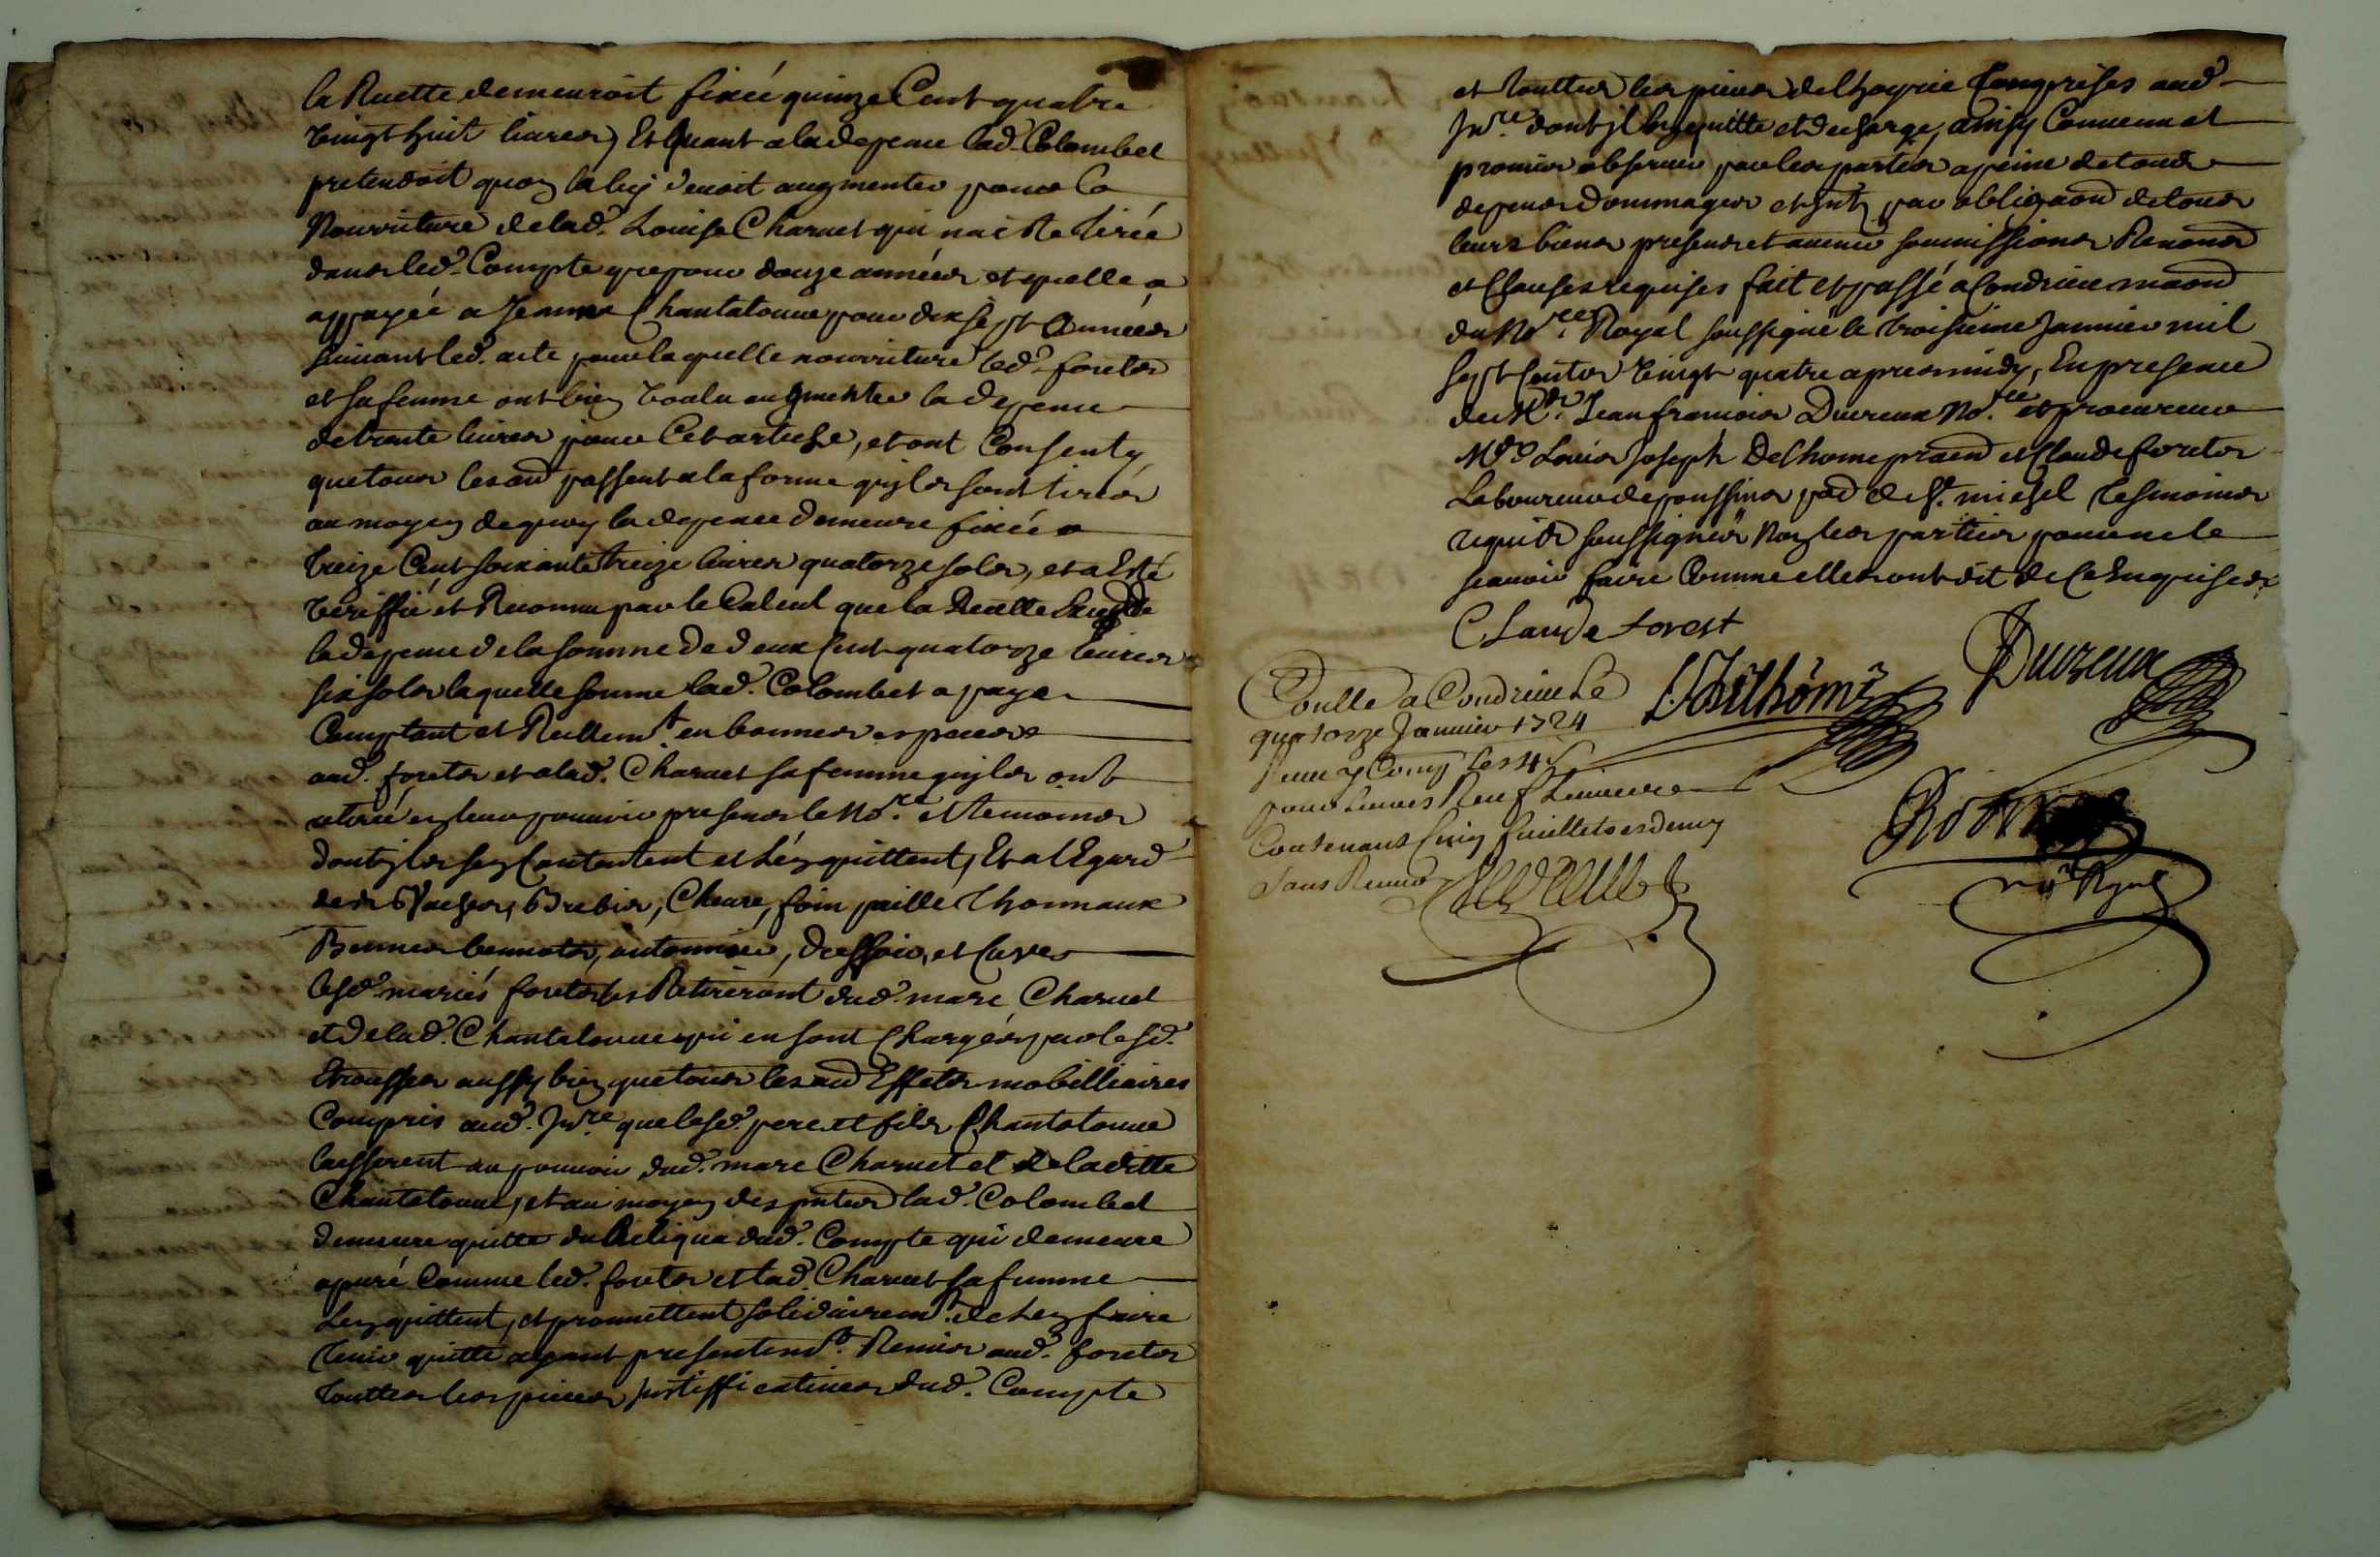 la Recette demeuroit fixée quinze Cent quatre
vingt huit livres, Et Quant a la depence lad. Colombet
pretendoit quon la luy devoit augmenter pour la
Nourriture de lad. Louise Charvet qui na eté tirée
dans led. Compte que pour douze années et quelle a
appayée a Jeanne Chantalouve pour dix sept années
suivant led. acte pour laquelle nourriture led. forets
et sa femme ont bien voulu augmenter la depence
de trente livres pour Cet article, et ont Consenty
que tous les aud passent a la forme quils sont tirés
au moyen de quoy la depence demeure fixée a
treize Cent soixante treize livres quatorze sols, et a Esté
veriffié et Reconnu par le Calcul que la Recette Excedde
la depence de la somme de deux Cent quatorze livres
six sols laquelle somme lad. Colombet a payé
Comptant et Reellemt. en bonnes especes
aud. forets et a lad. Charvet sa femme quils ont
retiré en leur pouvoir presens le Nore. et temoins
dont ils sen Contentent et Len quittent, Et a lEgard
des Vaches, Brebis, Chevre, foin paille thonnaux
Bennes bennots, antonnoir, dressoir, et Cuves
lesd. mariés forets les Retireront dud. marc Charvet
et de lad. Chantalouve qui en sont Chargés par lesd.
Etrousses aussy bien que tous les aud Effets mobilliaires
Compris aud. Jnre. que lesd. pere et fils Chantalouve
laisserent au pouvoir dud. marc Charvet et de laditte
Chantalouve, et au moyen des pntes lad. Colombet
demeure quitte du Reliqua dud. Compte qui demeure
apuré Comme led. forets et lad. Charvet sa femme
Len quittent, et promettent solidairemt. de Len faire
tenir quitte ayant presentemt. Remis aud. forets
touttes les pieces justifficatives dud. Compte
et touttes les pieces de lhoyrie Comprises aud.
Jnre. dont il len quitte et decharge, ainsy Convenu et
promis observer par les parties a peine de tous
depens dommages et jnts par obligaon de tous
leurs biens presens et avenir soumissions Renons
et Clauses requises fait et passé a Condrieu maon
du Nore. Royal soussigné le troisieme Janvier mil
sept Cents vingt quatre apres midy, En presence
de Me. Jean francois Duvreux Nore. et procureur
Mre Louis Joseph Delhome praen et Claude forets
Laboureur de poussins pad de St. michel tesmoins
requis soussignés Non les parties pour ne le
scavoir faire Comme elles ont dit de Ce Enquises
Claude forest
Duvreux
LJDelhome
Conllé a Condrieu Le
quatorze Janvier 1724
pour Livres Neuf
Contenant Cinq feuillets et demy
Sans Renvoy
nre Ryal